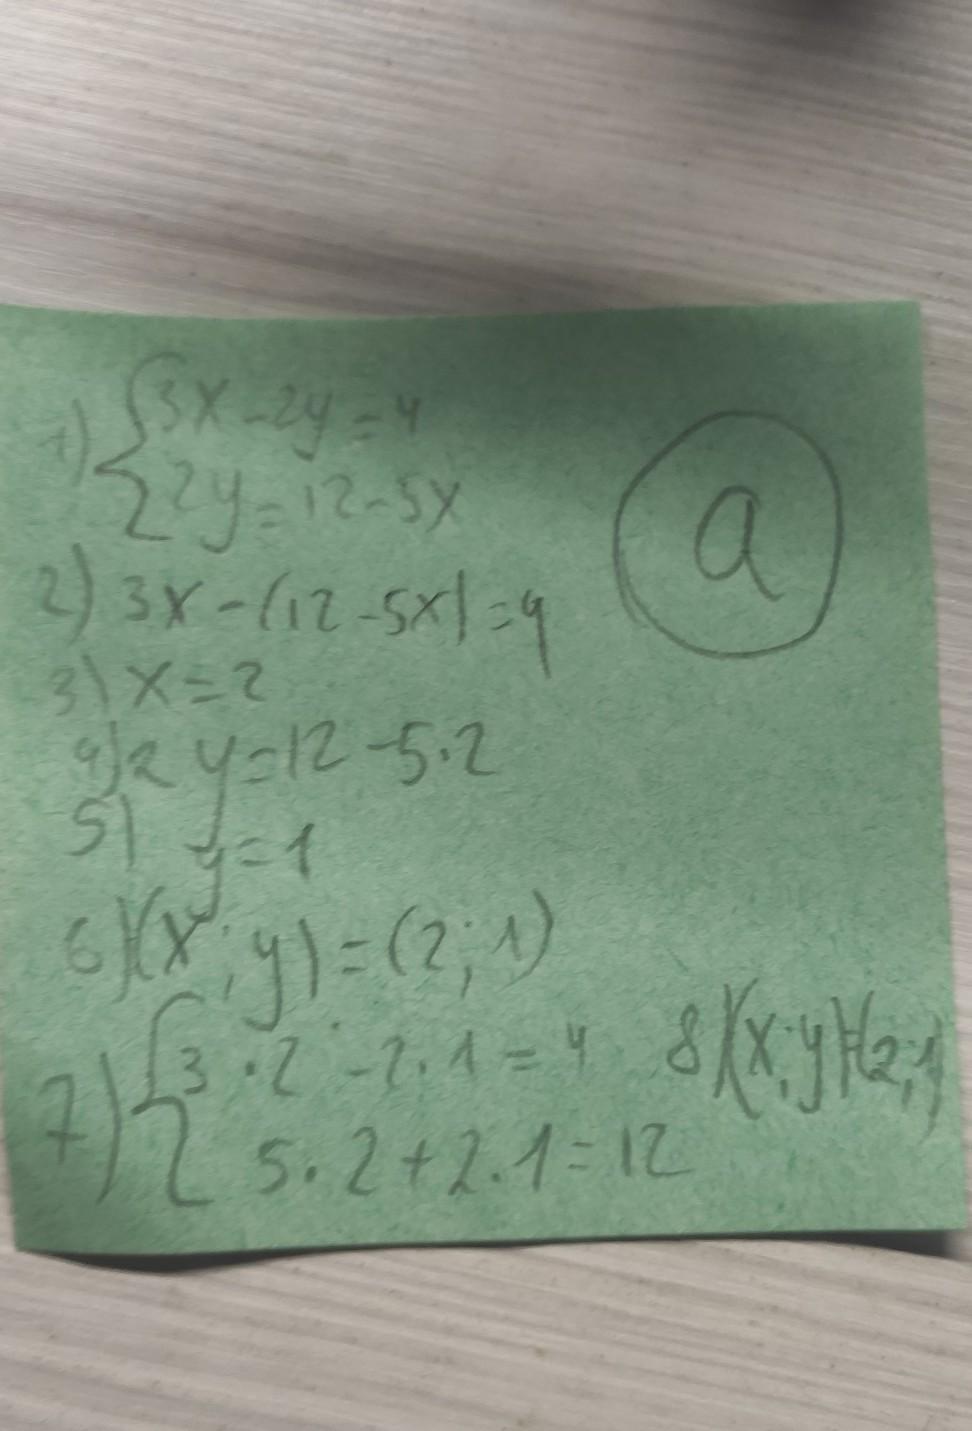 1) {3x - 2y = 4
{2y = 12 - 5x
a
2) 3x - (12 - 5x) = 4
3) x = 2
4) 2y = 12 - 5·2
5) y = 1
6) (x; y) = (2; 1)
7) {3·2 - 2·1 = 4
{5·2 + 2·1 = 12
8) (x; y) = (2; 1)